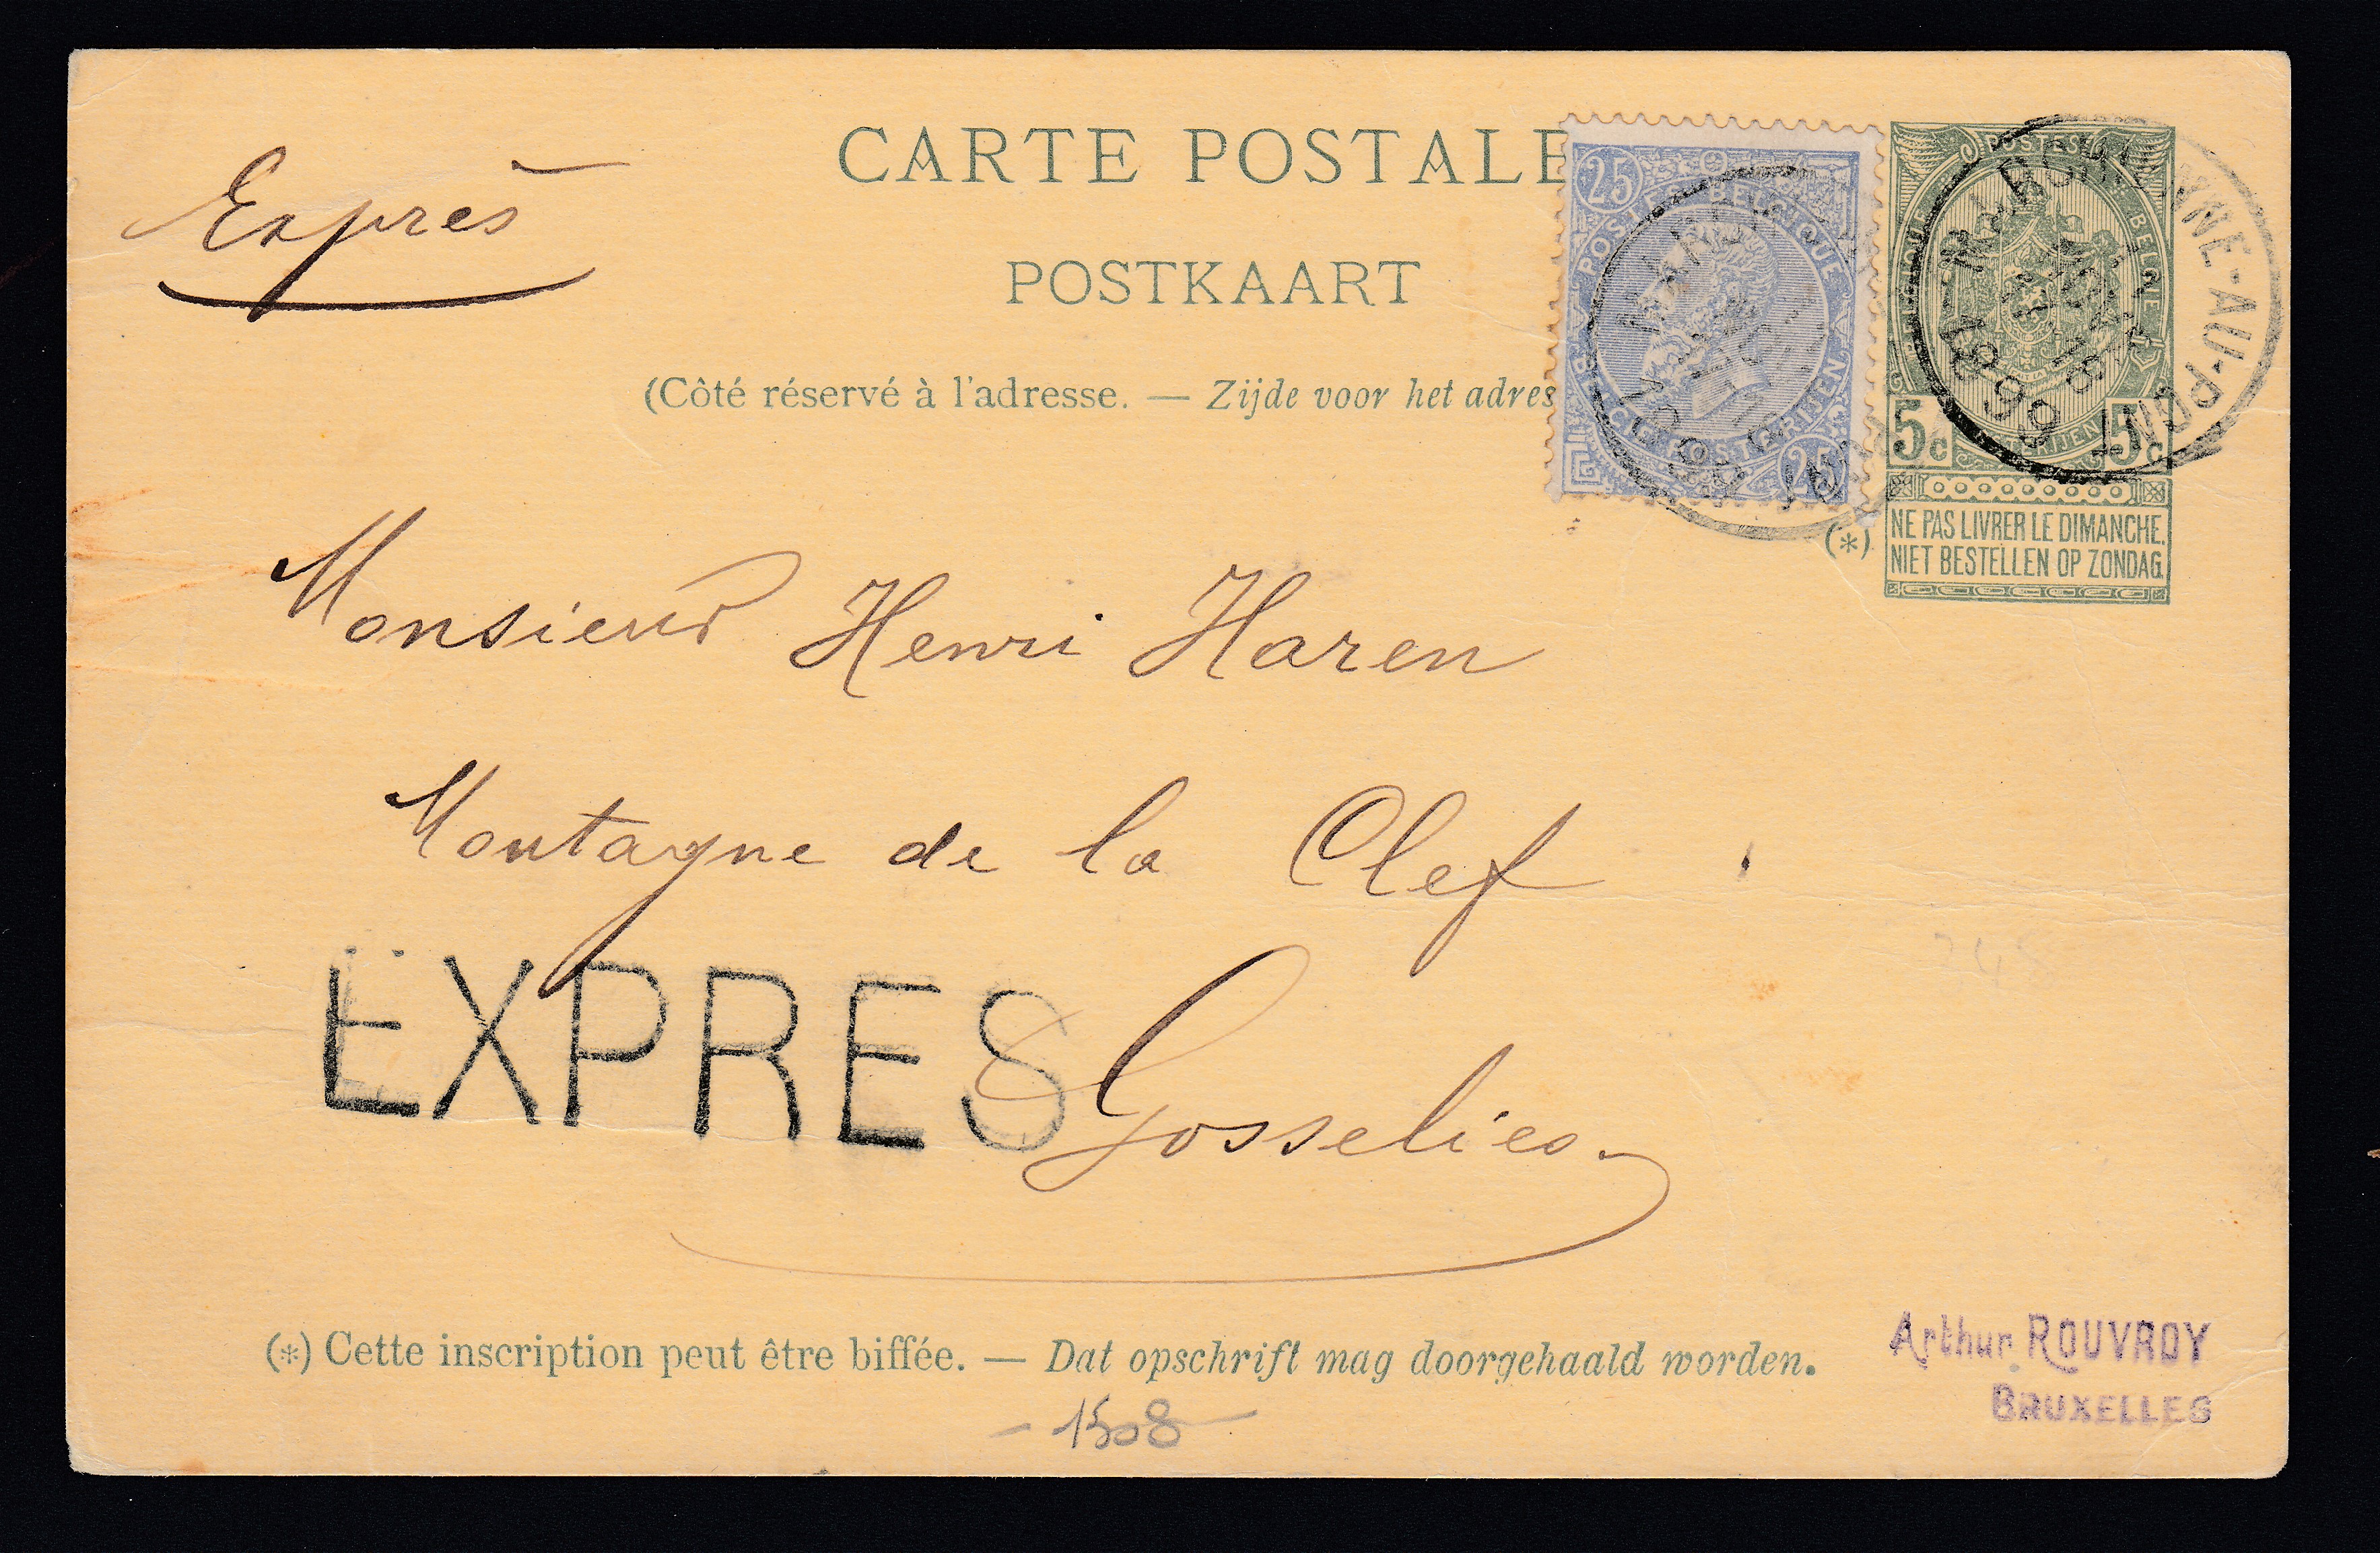 CARTE POSTALE
Exprès
POSTKAART
(Côté réservé à l'adresse. — Zijde voor het adres
25
POSTES BELGIQUE
BELGIE POSTERIJEN
25
POSTES
BELGIQUE BELGIE
POSTERIJEN
5c 5c
MARCHIENNE-AU-PONT
1899
(*) NE PAS LIVRER LE DIMANCHE.
NIET BESTELLEN OP ZONDAG
Monsieur Henri Haren
Montagne de la Clef
EXPRES
Gosselies
(*) Cette inscription peut être biffée. — Dat opschrift mag doorgehaald worden.
Arthur ROUVROY
BRUXELLES
- 1508 -